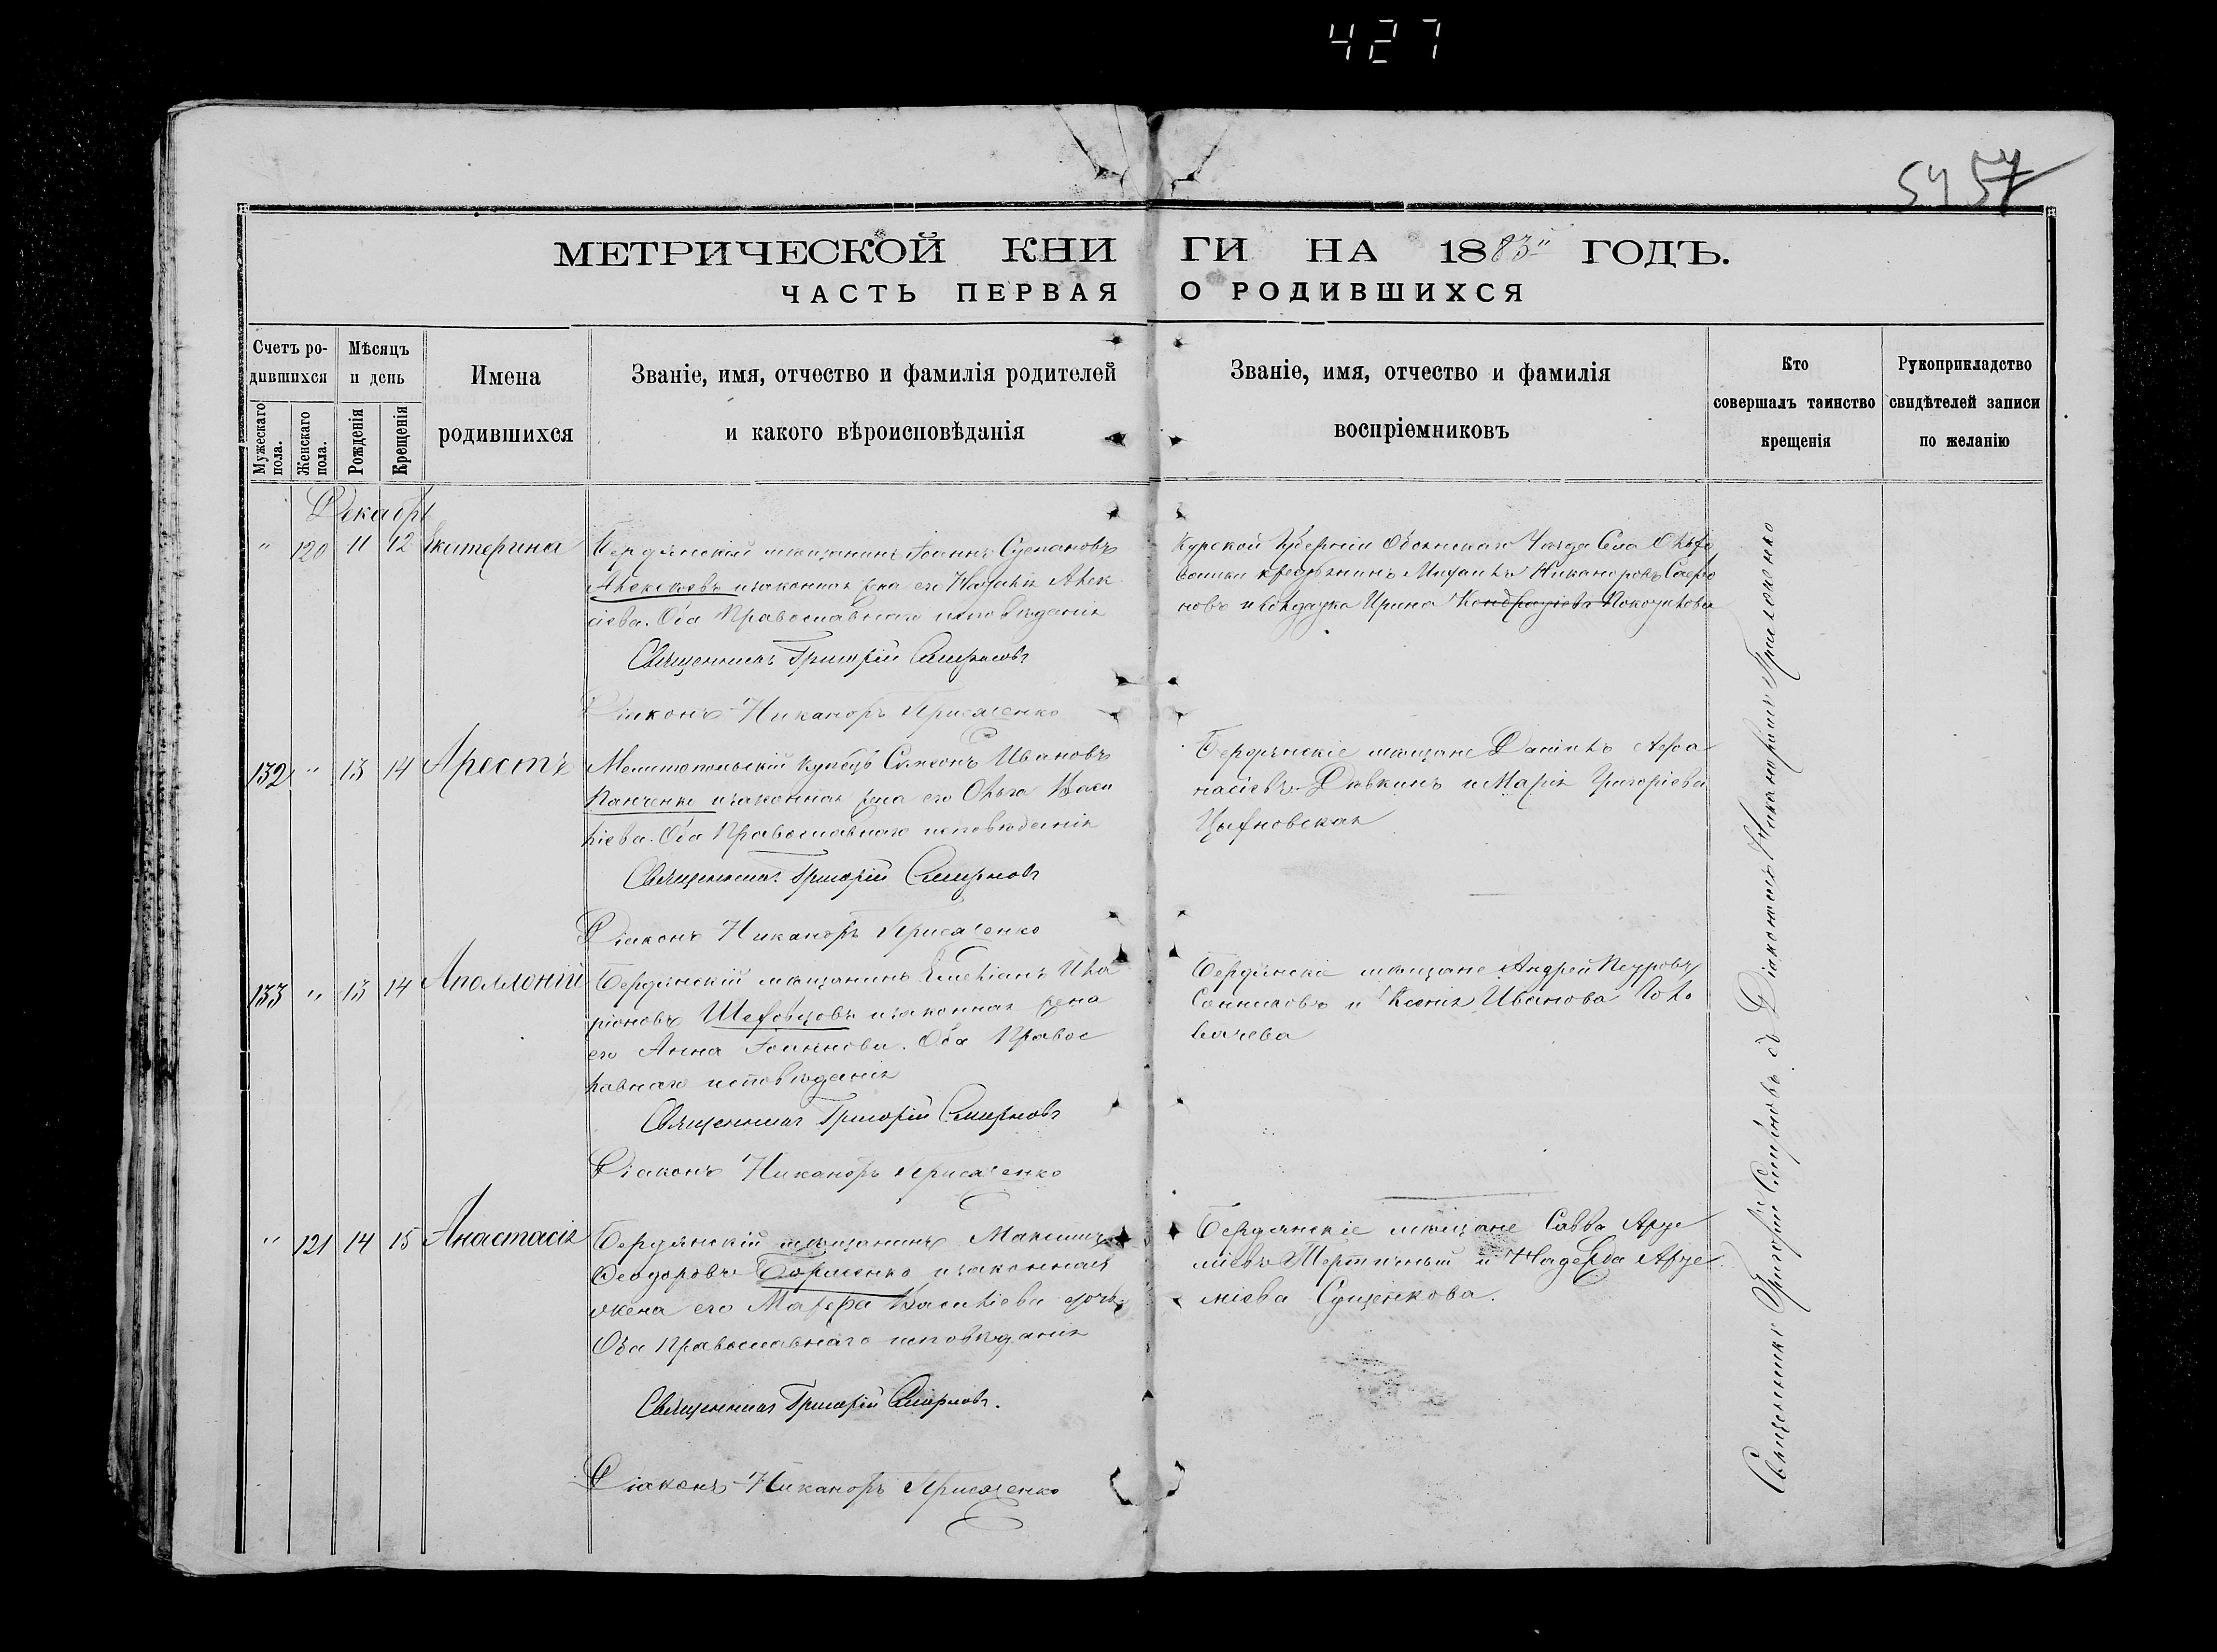 427
54 57
МЕТРИЧЕСКОЙ КНИГИ НА 1883й ГОДЪ.
ЧАСТЬ ПЕРВАЯ О РОДИВШИХСЯ
Счетъ ро-
дившихся
Мужескаго пола.
Женскаго пола.
Мѣсяцъ
и день
Рожденія
Крещенія
Имена
родившихся
Званіе, имя, отчество и фамилія родителей
и какого вѣроисповѣданія
Званіе, имя, отчество и фамилія
воспріемниковъ
Кто
совершалъ таинство
крещенія
Рукоприкладство
свидѣтелей записи
по желанію
Декабрь
" 120 11 12 Екатерина
Бердянскій мѣщанинъ Іоаннъ Степановъ
Алексѣевъ и законная жена его Наталія Алек
сіева. Оба Православнаго исповѣданія
Священникъ Григорій Смирновъ
Діаконъ Никаноръ Присяженко
Курской Губерніи Обоянскаго Уѣзда Села
крестьянинъ Михаилъ Никаноровъ
новъ и солдатка Ирина Кондратіева
132 " 13 14 Арестъ
Мелитопольскій купецъ Симеонъ Ивановъ
Панченко и законная жена его Ольга Васи
ліева. Оба Православнаго исповѣданія
Священникъ Григорій Смирновъ
Діаконъ Никаноръ Присяженко
Бердянскіе мѣщане Даніилъ Афа
насіевъ Дѣвкинъ и Марія Григоріева
133 " 13 14 Аполлоній
Бердянскій мѣщанинъ Емеліанъ Ила
ріоновъ Шефовцовъ и законная жена
его Анна Іоаннова. Оба Правос
лавнаго исповѣданія
Священникъ Григорій Смирновъ
Діаконъ Никаноръ Присяженко
Бердянскіе мѣщане Андрей Петровъ
Санниковъ и Ксенія Иванова Голо
вачева
" 121 14 15 Анастасія
Бердянскій мѣщанинъ Максимъ
Ѳеодоровъ Борисенко и законная
жена его Марѳа Василіева
Оба Православнаго исповѣданія
Священникъ Григорій Смирновъ.
Діаконъ Никаноръ Присяженко
Бердянскіе мѣщане Савва Арте
міевъ и Надежда Арте
міева Сущенкова.
Священникъ Григорій Смирновъ съ Діакономъ Никаноромъ Присяженко